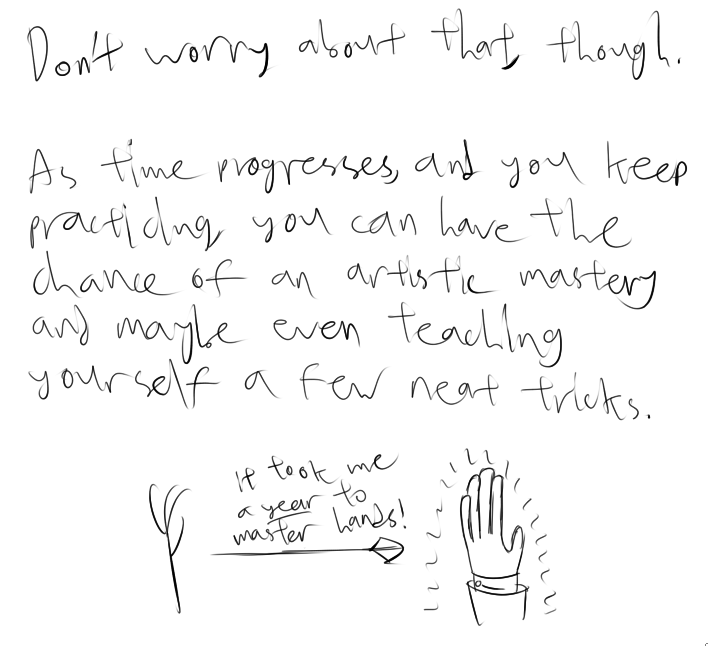 Don't worry about that, though.
As time progresses, and you keep
practicing, you can have the
chance of an artistic mastery
and maybe even teaching
yourself a few neat tricks.
It took me
a year to
master hands!